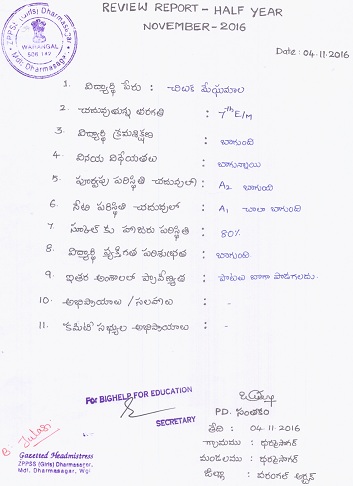 REVIEW REPORT - HALF YEAR
NOVEMBER - 2016
ZPPSS (Girls) Dharmasagar
WARANGAL
Mdl. Dharmasagar
Date : 04-11-2016
1. విద్యార్థి పేరు : చిటికె మేఘమాల
2. చదువుతున్న తరగతి : 7th E/M
3. విద్యార్థి క్రమశిక్షణ : బాగుంది
4. వినయ విధేయతలు : బాగున్నాయి
5. పూర్వపు పరిస్థితి చదువులో : A2 బాగుంది
6. నేటి పరిస్థితి చదువులో : A1 చాలా బాగుంది
7. స్కూల్ కు హాజరు పరిస్థితి : 80%
8. విద్యార్థి వ్యక్తిగత పరిశుభ్రత : బాగుంది
9. ఇతర అంశాలలో ప్రావీణ్యత : పాటలు బాగా పాడగలదు.
10. అభిప్రాయాలు / సలహాలు : -
11. కమిటీ సభ్యుల అభిప్రాయాలు : -
For BIGHELP FOR EDUCATION
SECRETARY
PD. సంతకం
తేది : 04-11-2016
గ్రామము : ధర్మసాగర్
మండలము : ధర్మసాగర్
జిల్లా : వరంగల్ అర్బన్
Gazetted Headmistress
ZPPSS (Girls) Dharmasagar,
Mdl. Dharmasagar, Wgl